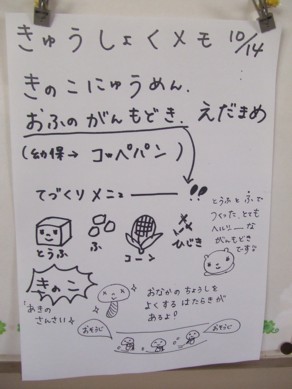 きゅうしょくメモ 10/14
きのこにゅうめん.
おふのがんもどき. えだまめ
(幼保→ コッペパン)
てづくりメニュー !!
とうふと ふで
つくった、とても
ヘルシーな
がんもどき
です
とうふ
ふ
コーン
ひじき
きのこ
「あきの
さんさい」
おなかの ちょうしを
よくする はたらきが
あるよ!
おそうじ
おそうじ